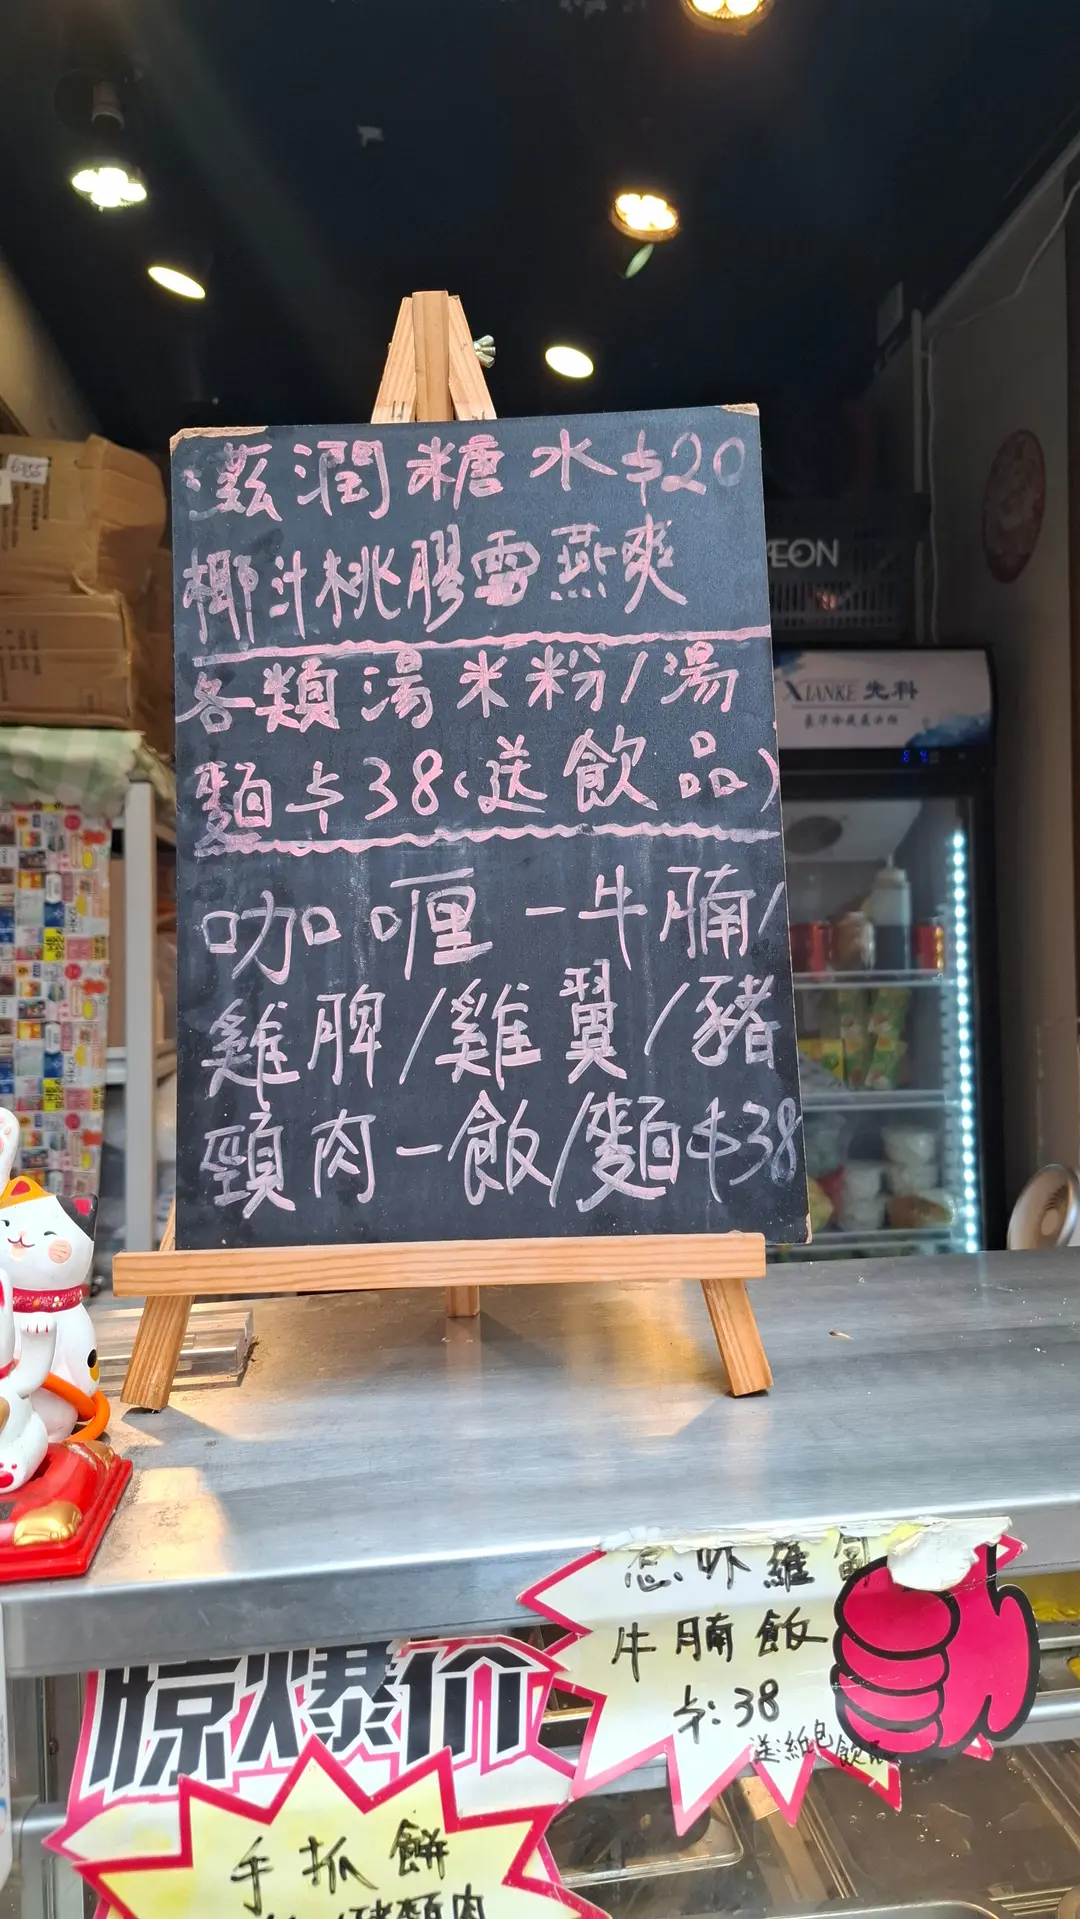 滋潤糖水$20
椰汁桃膠雪燕爽
各類湯米粉/湯
麵$38(送飲品)
咖喱-牛腩/
雞髀/雞翼/豬
頸肉-飯/麵$38
AEON
XIANKE 先科
6355
牛腩飯
$:38
送:紙包飲品
惊爆价
手抓餅